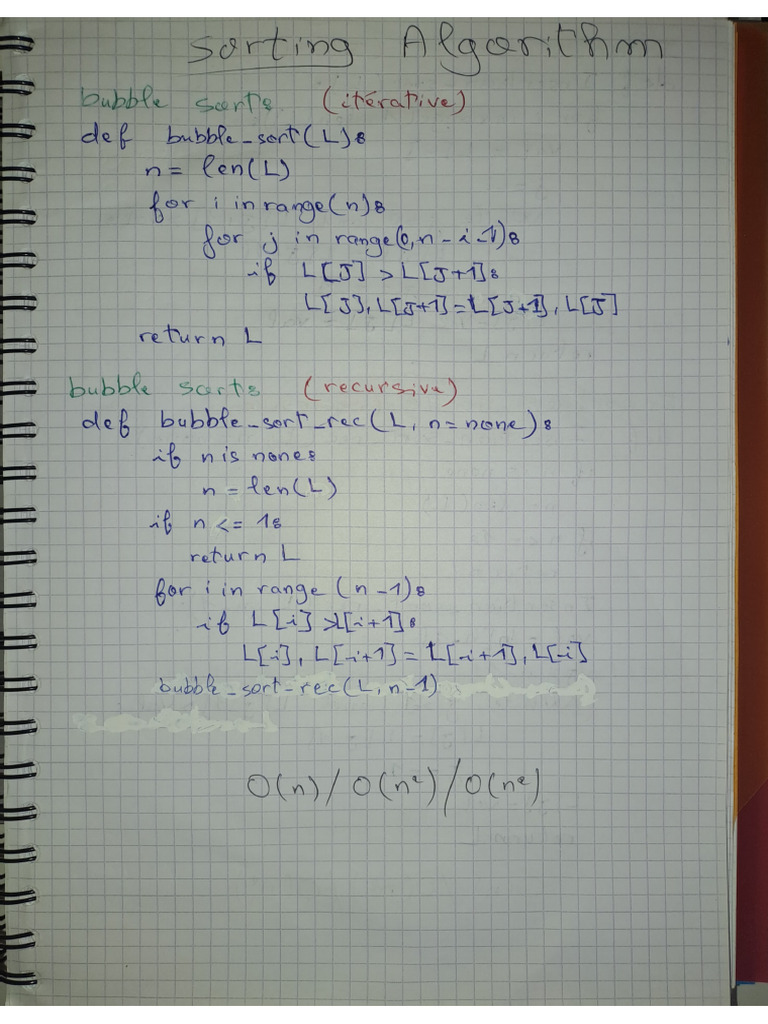 Sorting Algorithm
bubble sort: (itérative)
def bubble_sort(L):
n = len(L)
for i in range(n):
for j in range(0, n-i-1):
if L[J] > L[J+1]:
L[J], L[J+1] = L[J+1], L[J]
return L
bubble sort: (recursive)
def bubble_sort_rec(L, n=none):
if n is none:
n = len(L)
if n <= 1:
return L
for i in range (n-1):
if L[i] > L[i+1]:
L[i], L[i+1] = L[i+1], L[i]
bubble_sort_rec(L, n-1)
O(n) / O(n²) / O(n²)